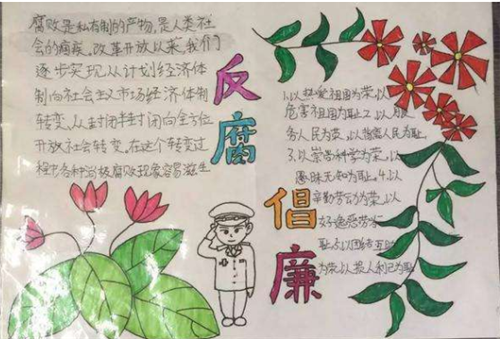 腐败是私有制的产物,是人类社
会的痼疾。改革开放以来,我们
逐步实现从计划经济体
制向社会主义市场经济体制
转变,从封闭半封闭向全方位
开放社会转变。在这个转变过
程中各种消极腐败现象容易滋生
反
腐
倡
廉
1.以热爱祖国为荣,以
危害祖国为耻2.以服
务人民为荣,以背离人民为耻
3.以崇尚科学为荣,以
愚昧无知为耻.4.以
辛勤劳动为荣,以
好逸恶劳为
耻,5.以团结互助
为荣,以损人利己为耻